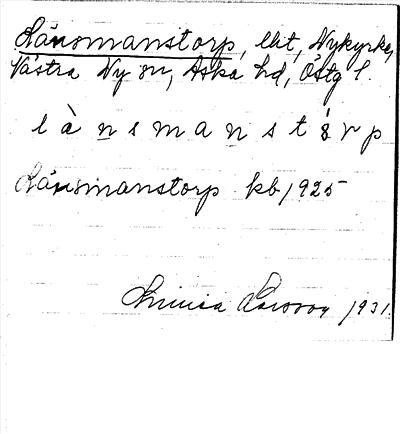 Länsmanstorp, lht, Nykyrka,
Västra Ny sn, Aska hd, Östg l.
l à n s m a n s t ó r p
Länsmanstorp kb 1925
1931.